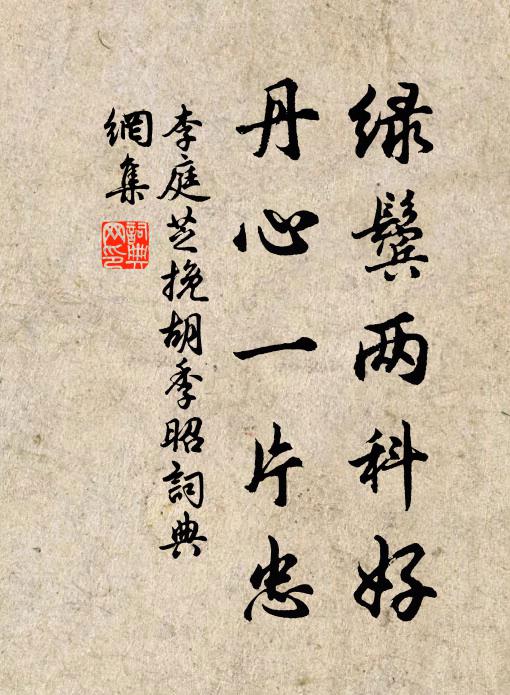 绿鬓两科好
丹心一片忠
李庭芝挽胡季昭詞典
網集
詞典
网印